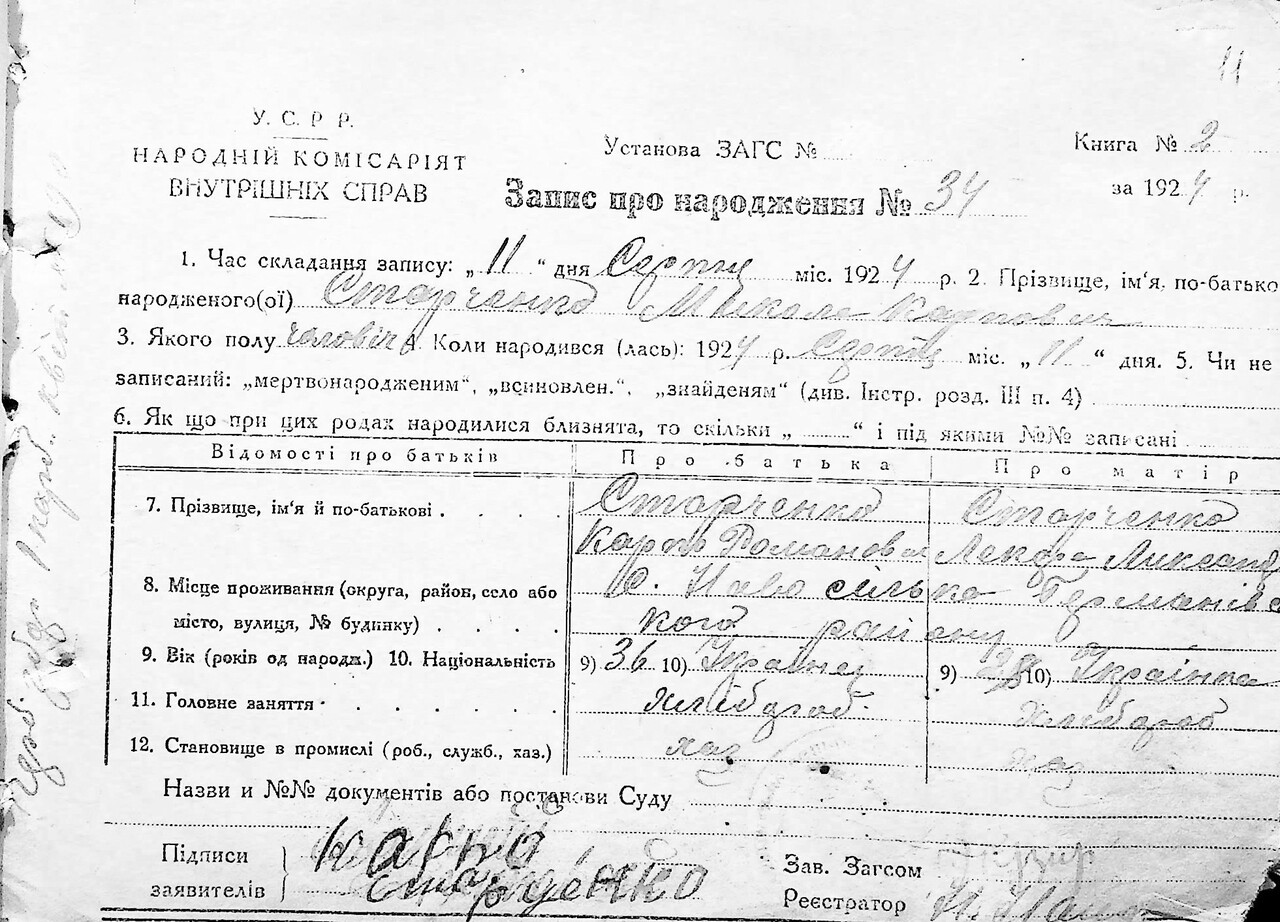 11
У. С. Р. Р.
НАРОДНІЙ КОМІСАРІЯТ
ВНУТРІШНІХ СПРАВ
Установа ЗАГС №
Книга № 2
за 1924 р.
Запис про народження № 34
1. Час складання запису: „ 11 “ дня Серпня міс. 1924 р. 2. Прізвище, ім‘я, по-батько
народженого(ої) Старченко Микола Карпович
3. Якого полу чоловіч 4. Коли народився (лась): 1924 р. Серпня міс. „ 11 “ дня. 5. Чи не
записаний: „мертвонародженим“, „всиновлен.“, „знайденям“ (див. Інстр. розд. III п. 4)
6. Як що при цих родах народилися близнята, то скільки „ “ і під якими №№ записані
Відомості про батьків Про батька Про матір
7. Прізвище, ім‘я й по-батькові Старченко Старченко
Карпо Романович
8. Місце проживання (округа, район, село або с. Ново сілька Германівс
місто, вулиця, № будинку) кого району
9. Вік (років од народж.) 10. Національність 9) 36 10) Українец 9) 10) Українка
11. Головне заняття хлібороб хлібороб
12. Становище в промислі (роб., служб., хаз.) хаз хаз
Назви и №№ документів або постанови Суду
Підписи Карпо
заявителів Старченко
Зав. Загсом
Реєстратор